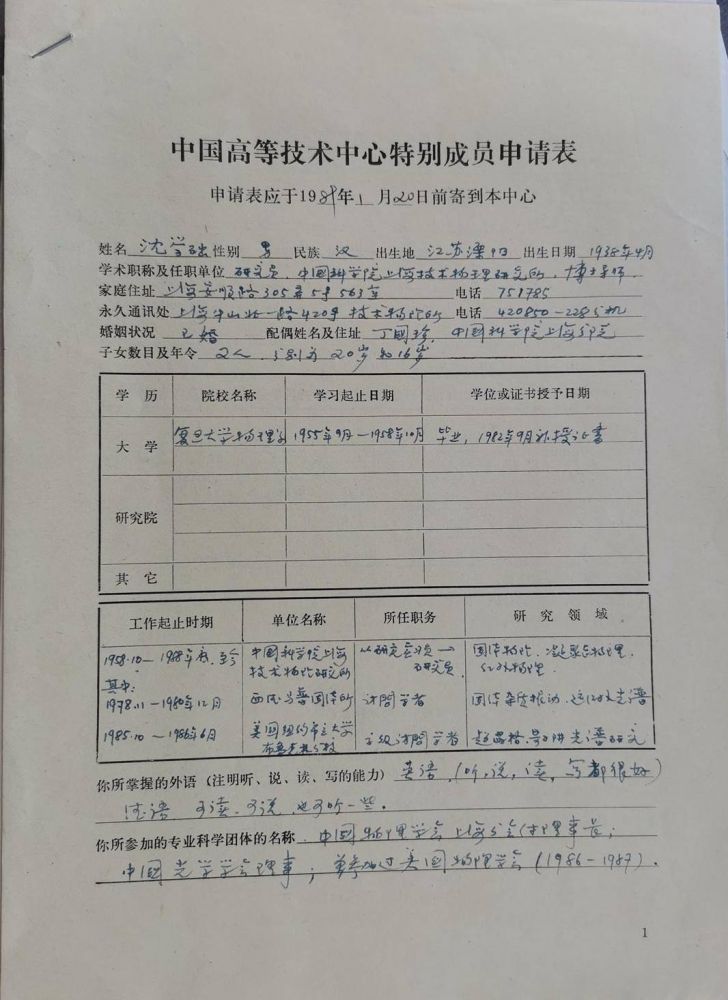 中国高等技术中心特别成员申请表
申请表应于1989年1月20日前寄到本中心
姓名 沈学础 性别 男 民族 汉 出生地 江苏溧阳 出生日期 1938年4月
学术职称及任职单位 研究员,中国科学院上海技术物理研究所,博士导师.
家庭住址 上海安顺路305弄5号563室 电话 751785
永久通讯处 上海中山北一路420号 技术物理所 电话 420850-228分机
婚姻状况 已婚 配偶姓名及住址 丁国珍,中国科学院上海分院
子女数目及年令 2人,分别为20岁和16岁
学 历 院校名称 学习起止日期 学位或证书授予日期
大 学 复旦大学物理系 1955年9月—1958年10月 毕业,1982年9月补授证书
研究院
其 它
工作起止时期 单位名称 所任职务 研 究 领 域
1958.10—1988年底,至今 中国科学院上海 从研究实习员→ 固体物理.凝聚态物理.
技术物理研究所 研究员 红外物理.
其中:
1978.11—1980年12月 西德马普固体所 访问学者 固体杂质振动.远红外光谱
1985.10—1986年6月 美国纽约市立大学 高级访问学者 超晶格.量子阱光谱研究
布鲁克林分校
你所掌握的外语 (注明听、说、读、写的能力) 英语,(听,说,读,写都很好)
德语 可读.可说 也可听一些.
你所参加的专业科学团体的名称.中国物理学会上海分会付理事长;
中国光学学会理事;曾参加过美国物理学会(1986-1987).
1